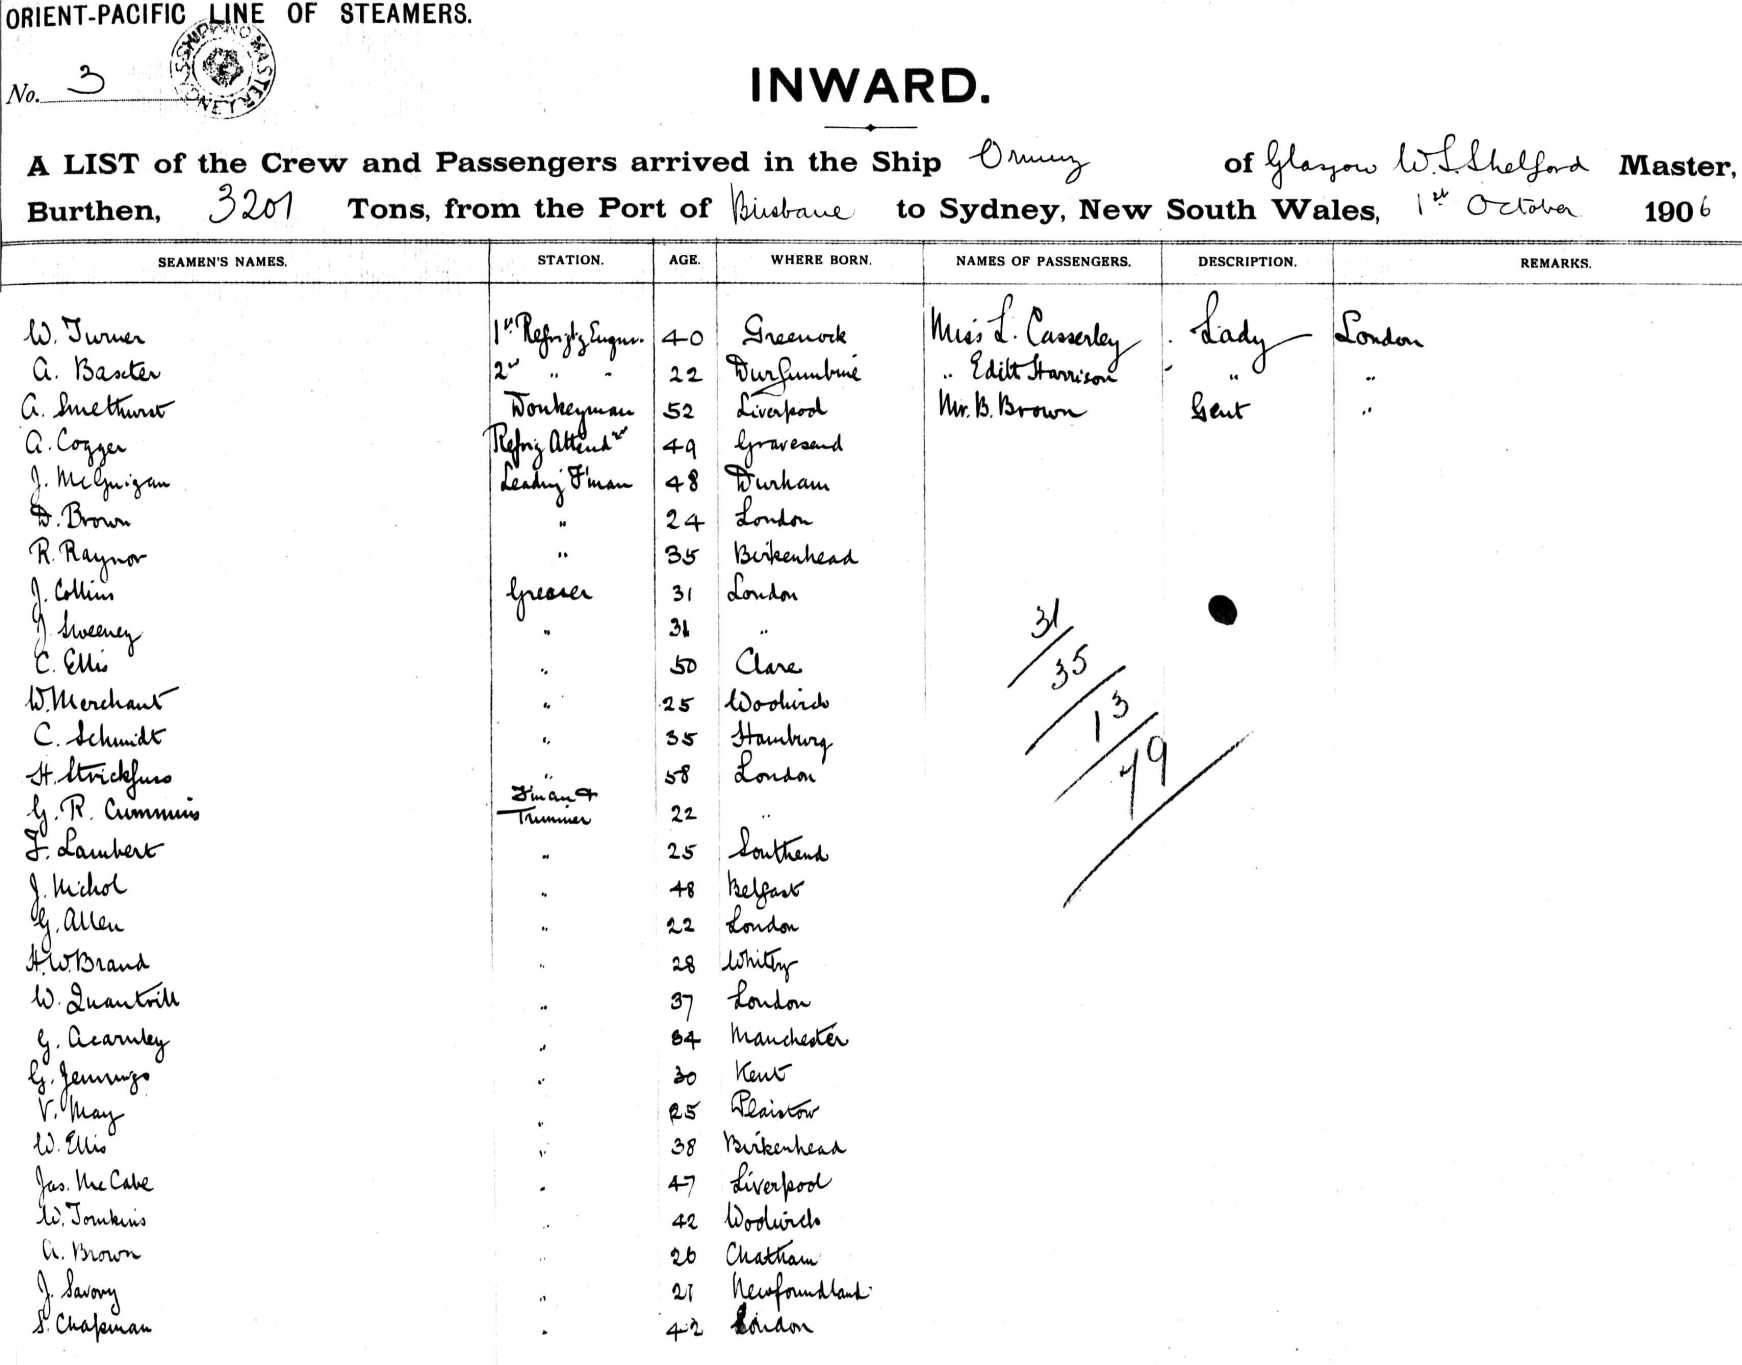 ORIENT-PACIFIC LINE OF STEAMERS.
No. 3
INWARD.
A LIST of the Crew and Passengers arrived in the Ship Ormuz of Glasgow W.S. Shelford Master,
Burthen, 3201 Tons, from the Port of Brisbane to Sydney, New South Wales, 1st October 1906
SEAMEN'S NAMES. STATION. AGE. WHERE BORN. NAMES OF PASSENGERS. DESCRIPTION. REMARKS.
W. Turner 1st 40 Greenock Miss L. Casserley Lady London
A. Baxter 2nd " " 22 " Edith Harrison " "
A. Smethurst Donkeyman 52 Liverpool Mr. B. Brown Gent "
A. Cogger Refrig Attendt 49 Gravesend
J. McGuigan Leading F'man 48 Durham
D. Brown " 24 London
R. Raynor " 35 Birkenhead
J. Collins Greaser 31 London
J. Sweeney " 31 "
C. Ellis " 50 Clare
W. Merchant " 25 Woolwich
C. Schmidt " 35 Hamburg
H. Strickfuss " 58 London
G. R. Cummins F'man & Trimmer 22 "
F. Lambert " 25 Southend
J. Nichol " 48 Belfast
G. Allen " 22 London
H.W. Brand " 28 Whitby
W. Quantrill " 37 London
G. Acarnley " 34 Manchester
G. Jennings " 30 Kent
V. May " 25 Plaistow
W. Ellis " 38 Birkenhead
Jas. McCabe " 47 Liverpool
W. Tomkins " 42 Woolwich
A. Brown " 26 Chatham
J. Savory " 21 Newfoundland
S. Chapman " 42 London
31
35
13
79